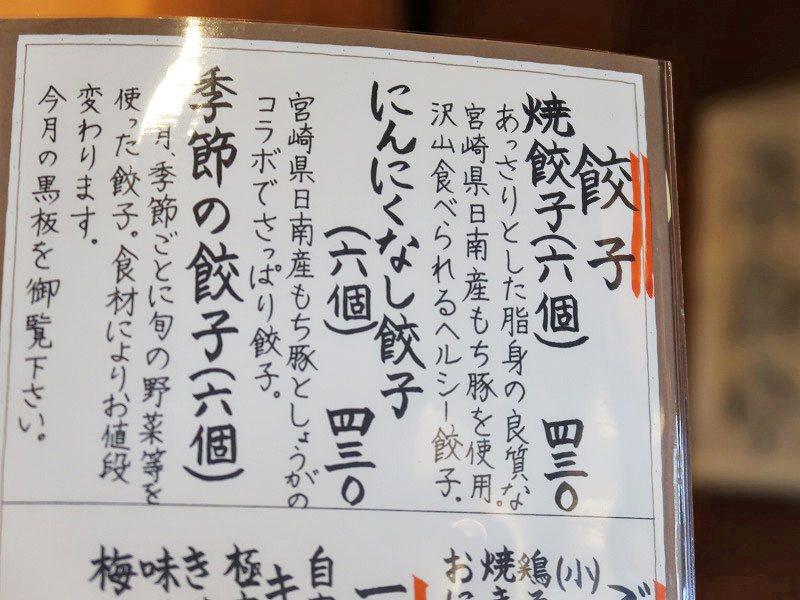 餃子
焼餃子(六個) 四三〇
あっさりとした脂身の良質な
宮崎県日南産もち豚を使用。
沢山食べられるヘルシー餃子.
にんにくなし餃子
(六個) 四三〇
宮崎県日南産もち豚としょうがの
コラボでさっぱり餃子。
季節の餃子(六個)
月、季節ごとに旬の野菜等を
使った餃子。食材によりお値段
変わります。
今月の黒板を御覧下さい。
ご
(小)
鶏
焼き
お
一
自
キ
極
き
味
梅